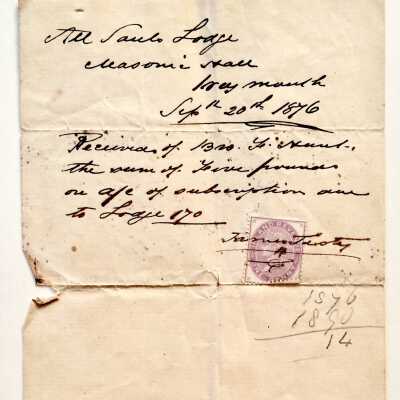 All Souls Lodge
Masonic Hall
Weymouth
Septh 20th 1876
Received of Bro. F. Hunt.,
the sum of Five pounds
on a/c of subscription due
to Lodge 170
1876
1890
14